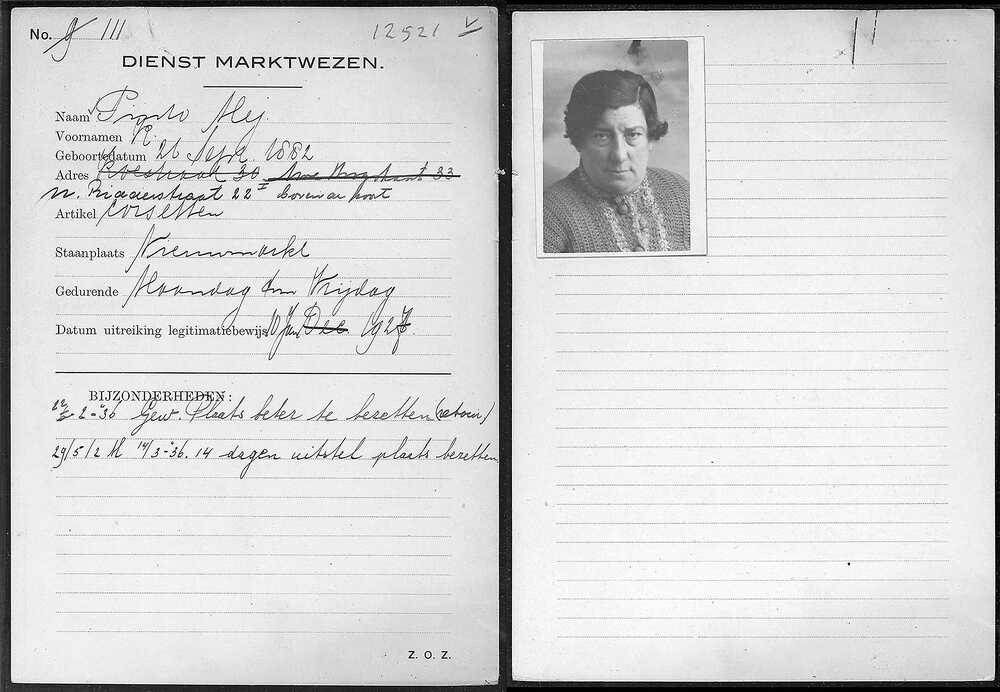 No. 9 111 12521 V
DIENST MARKTWEZEN.
Naam Pinto Mej.
Voornamen R.
Geboortedatum 26 Sept. 1882
Adres 30 33
N. Ridderstraat 22 I
Artikel Corsetten
Staanplaats Nieuwmarkt
Gedurende Maandag t/m Vrijdag
Datum uitreiking legitimatiebewijs 10 Jan Dec. 1927
BIJZONDERHEDEN:
2-'36 Gew. Plaats beter te bezetten
29/5/2 M 14/3-'36. 14 dagen uitstel plaats bezetten
Z. O. Z.